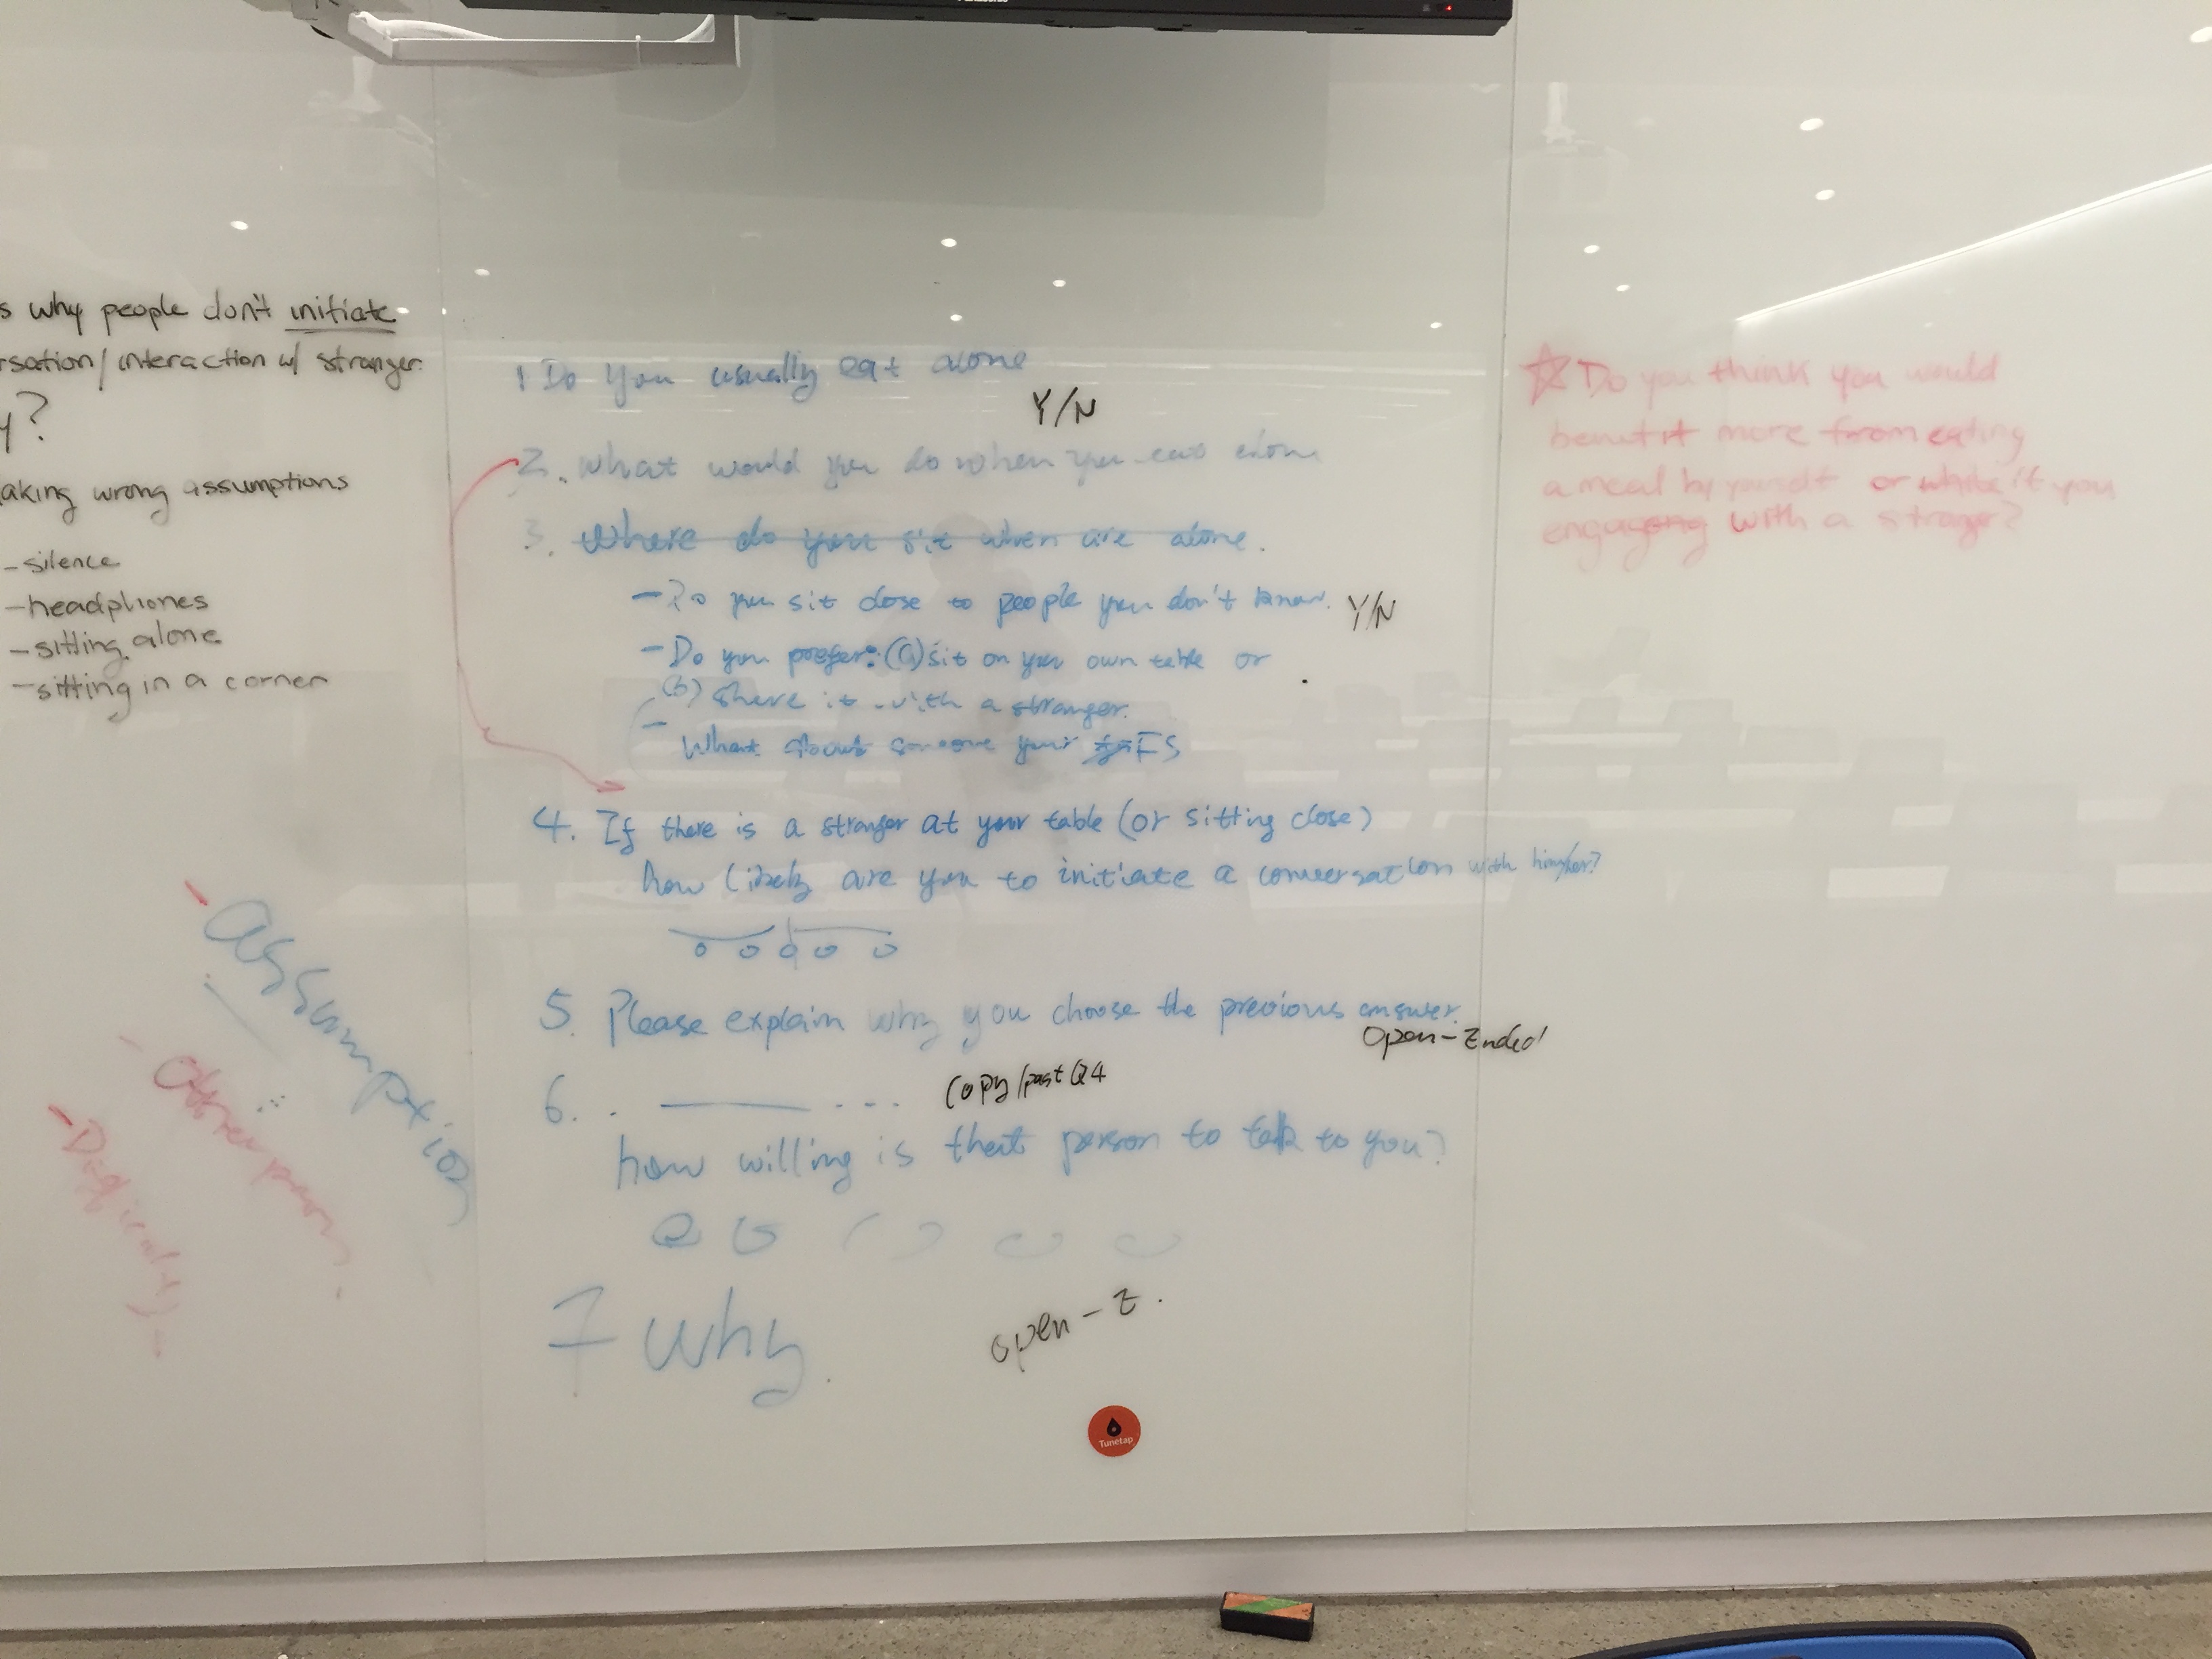 s why people don't initiate
rsation/interaction w/ stranger.
y?
aking wrong assumptions
- silence
- headphones
- sitting alone
- sitting in a corner
1 Do you usually eat alone
Y/N
2. What would you do when you eat alone
3. Where do you sit when are alone.
- Do you sit close to people you don't know. Y/N
- Do you prefer: (a) sit on you own table or
(b) share it with a stranger.
- What about someone your FS
4. If there is a stranger at your table (or sitting close)
how likely are you to initiate a conversation with him/her?
5. Please explain why you choose the previous answer.
Open-Ended
6. . ——— ... Copy/past Q4
how willing is that person to talk to you?
7 Why.
open-E.
Tunetap
- Assumption
- Other person
☆ Do you think you would
benefit more from eating
a meal by yourself or while if you
engaging with a stranger?